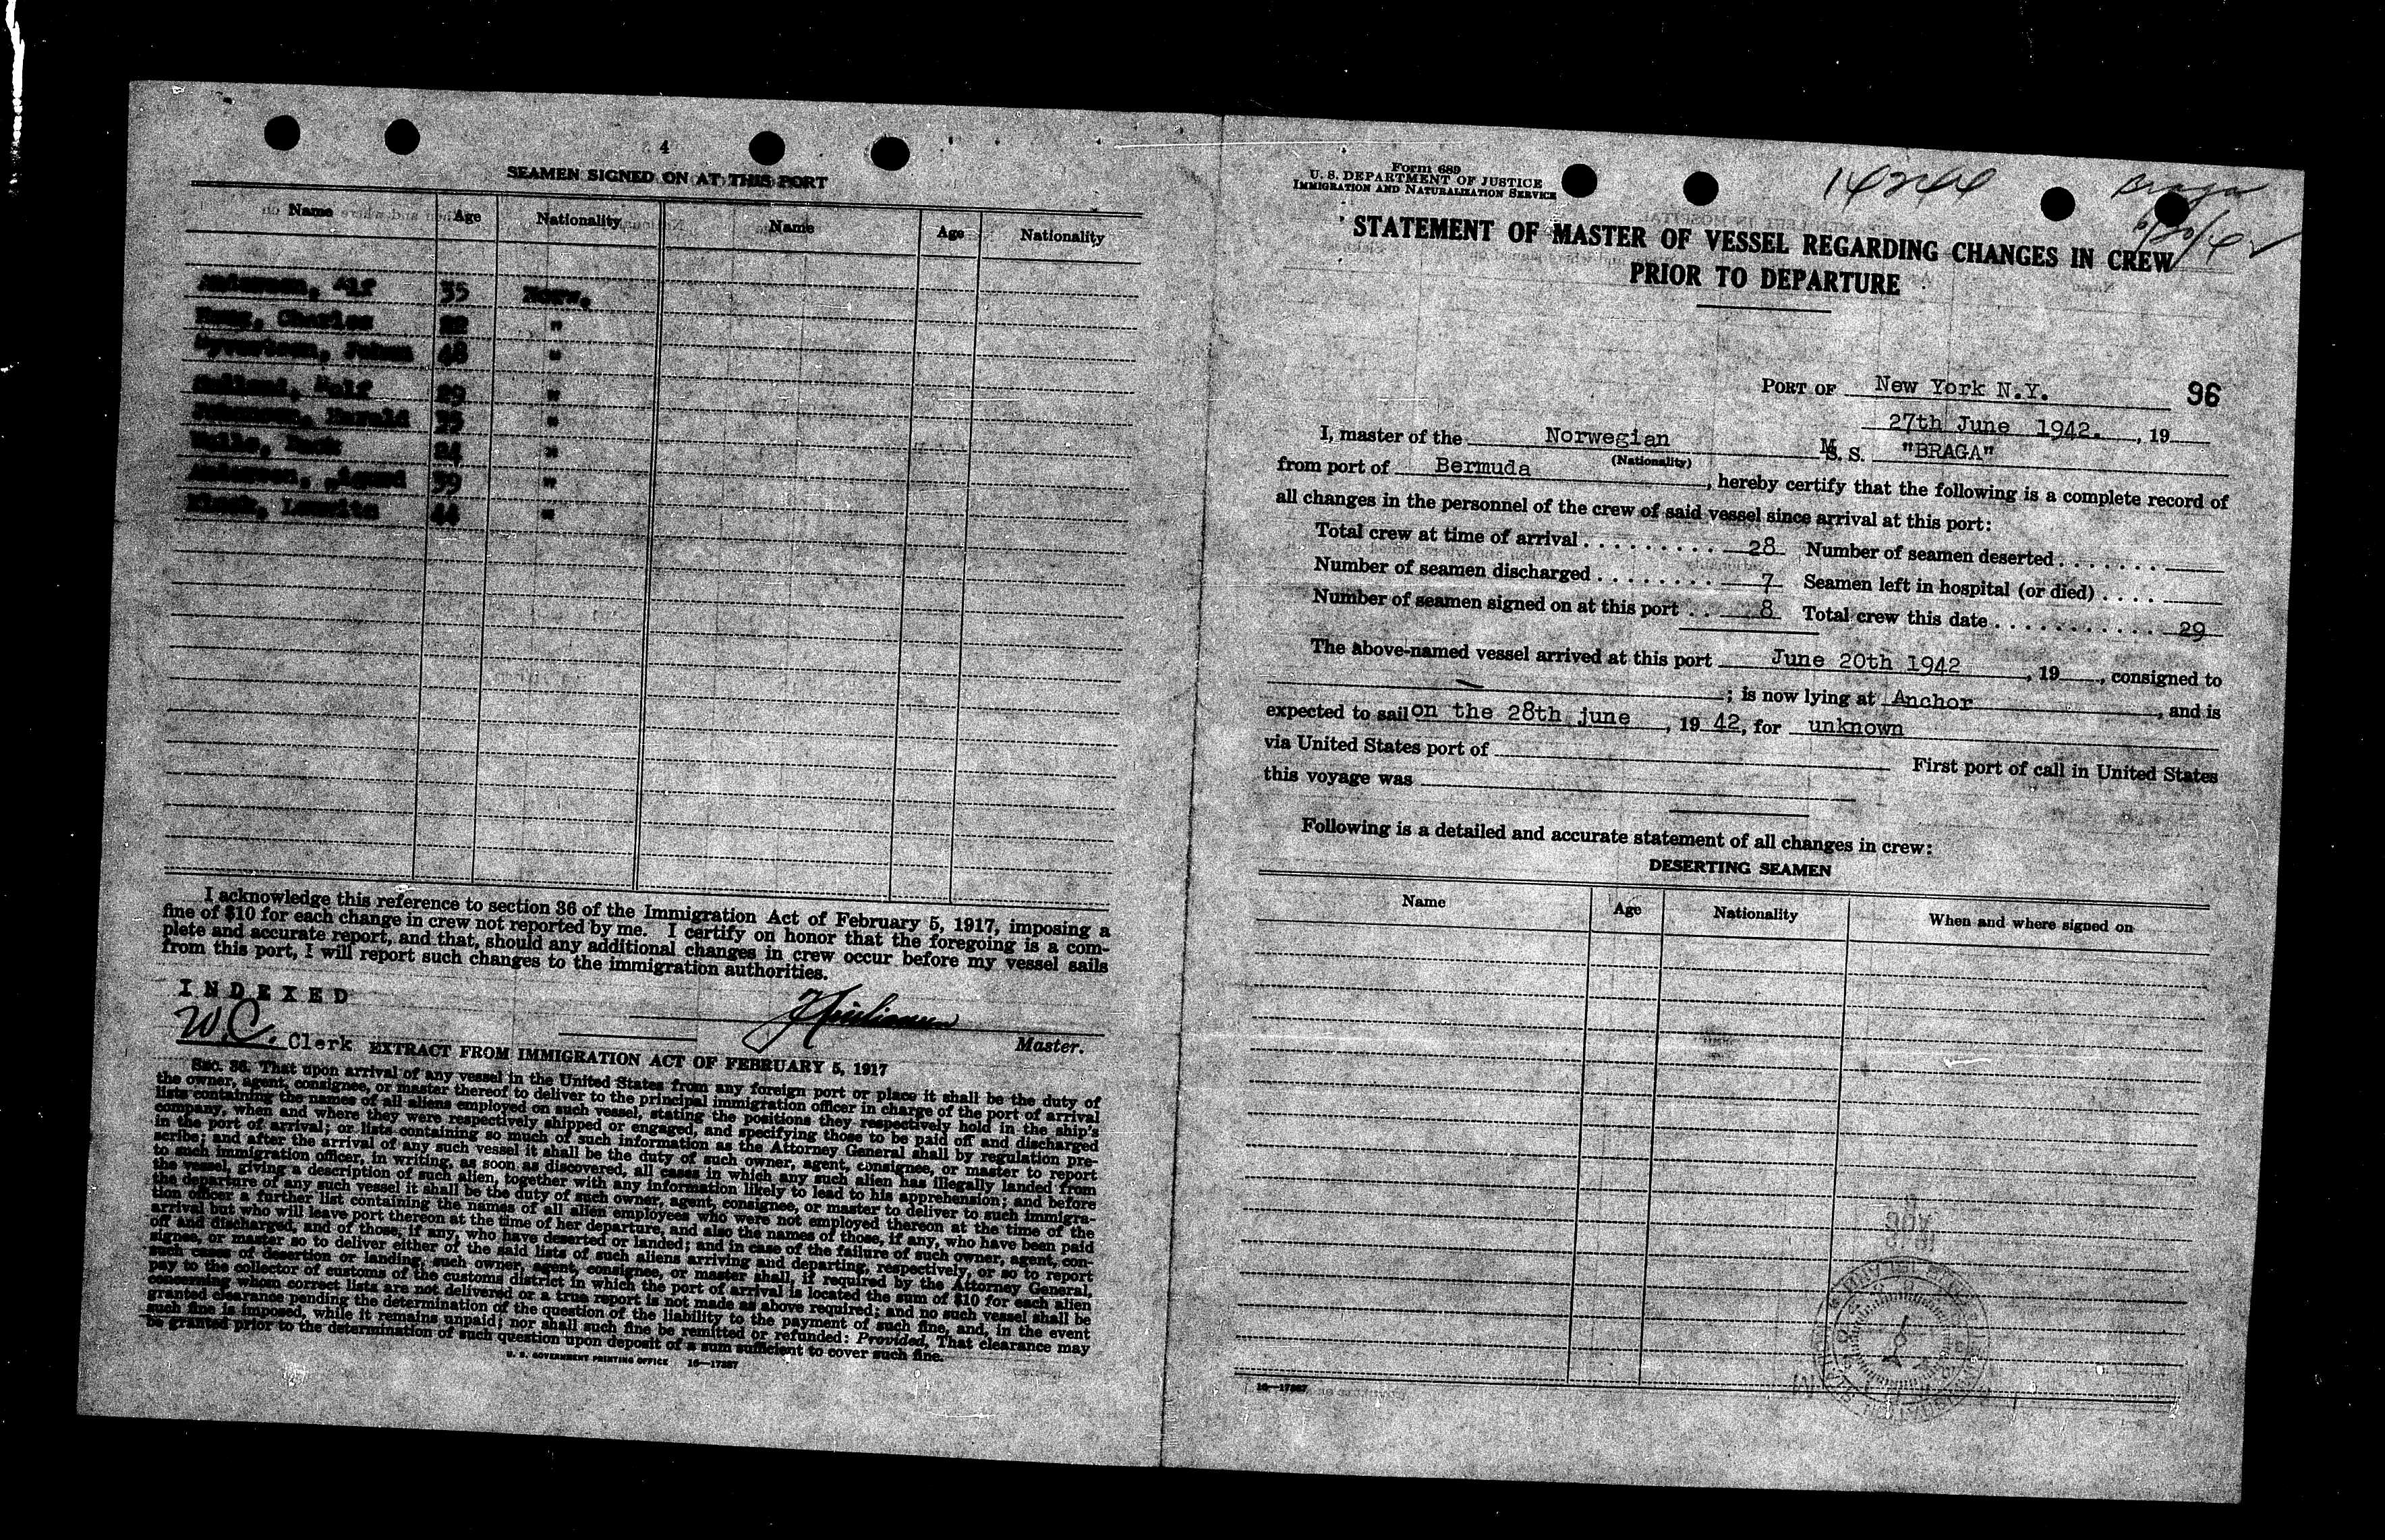 4
SEAMEN SIGNED ON AT THIS PORT
Name Age Nationality Name Age Nationality
Alf 35 Norw.
Charles 22 "
Johan 48 "
29 "
Harald 35 "
24 "
Andersen, 39 "
44 "
I acknowledge this reference to section 36 of the Immigration Act of February 5, 1917, imposing a
fine of $10 for each change in crew not reported by me. I certify on honor that the foregoing is a com-
plete and accurate report, and that, should any additional changes in crew occur before my vessel sails
from this port, I will report such changes to the immigration authorities.
INDEXED
W.C. Clerk
Master.
EXTRACT FROM IMMIGRATION ACT OF FEBRUARY 5, 1917
SEC. 36. That upon arrival of any vessel in the United States from any foreign port or place it shall be the duty of
the owner, agent, consignee, or master thereof to deliver to the principal immigration officer in charge of the port of arrival
lists containing the names of all aliens employed on such vessel, stating the positions they respectively hold in the ship's
company, when and where they were respectively shipped or engaged, and specifying those to be paid off and discharged
in the port of arrival; or lists containing so much of such information as the Attorney General shall by regulation pre-
scribe; and after the arrival of any such vessel it shall be the duty of such owner, agent, consignee, or master to report
to such immigration officer, in writing, as soon as discovered, all cases in which any such alien has illegally landed from
the vessel, giving a description of such alien, together with any information likely to lead to his apprehension; and before
the departure of any such vessel it shall be the duty of such owner, agent, consignee, or master to deliver to such immigra-
tion officer a further list containing the names of all alien employees who were not employed thereon at the time of the
arrival but who will leave port thereon at the time of her departure, and also the names of those, if any, who have been paid
off and discharged, and of those, if any, who have deserted or landed; and in case of the failure of such owner, agent, con-
signee, or master so to deliver either of the said lists of such aliens arriving and departing, respectively, or so to report
such cases of desertion or landing, such owner, agent, consignee, or master shall, if required by the Attorney General,
pay to the collector of customs of the customs district in which the port of arrival is located the sum of $10 for each alien
concerning whom correct lists are not delivered or a true report is not made as above required; and no such vessel shall be
granted clearance pending the determination of the question of the liability to the payment of such fine, and, in the event
such fine is imposed, while it remains unpaid; nor shall such fine be remitted or refunded: Provided, That clearance may
be granted prior to the determination of such question upon deposit of a sum sufficient to cover such fine.
U. S. GOVERNMENT PRINTING OFFICE 16—17887
Form 689
U. S. DEPARTMENT OF JUSTICE
IMMIGRATION AND NATURALIZATION SERVICE
Braga
6/20/42
STATEMENT OF MASTER OF VESSEL REGARDING CHANGES IN CREW
PRIOR TO DEPARTURE
PORT OF New York N.Y. 96
27th June 1942., 19
I, master of the Norwegian M S. S. "BRAGA"
(Nationality)
from port of Bermuda, hereby certify that the following is a complete record of
all changes in the personnel of the crew of said vessel since arrival at this port:
Total crew at time of arrival . . . . . . . . . . 28 Number of seamen deserted . . . . . . .
Number of seamen discharged . . . . . . . . 7 Seamen left in hospital (or died) . . . .
Number of seamen signed on at this port . . 8 Total crew this date . . . . . . . . . . . . 29
The above-named vessel arrived at this port June 20th 1942, 19, consigned to
; is now lying at Anchor, and is
expected to sail on the 28th june, 19 42, for unknown
via United States port of First port of call in United States
this voyage was
Following is a detailed and accurate statement of all changes in crew:
DESERTING SEAMEN
Name Age Nationality When and where signed on
16—17887